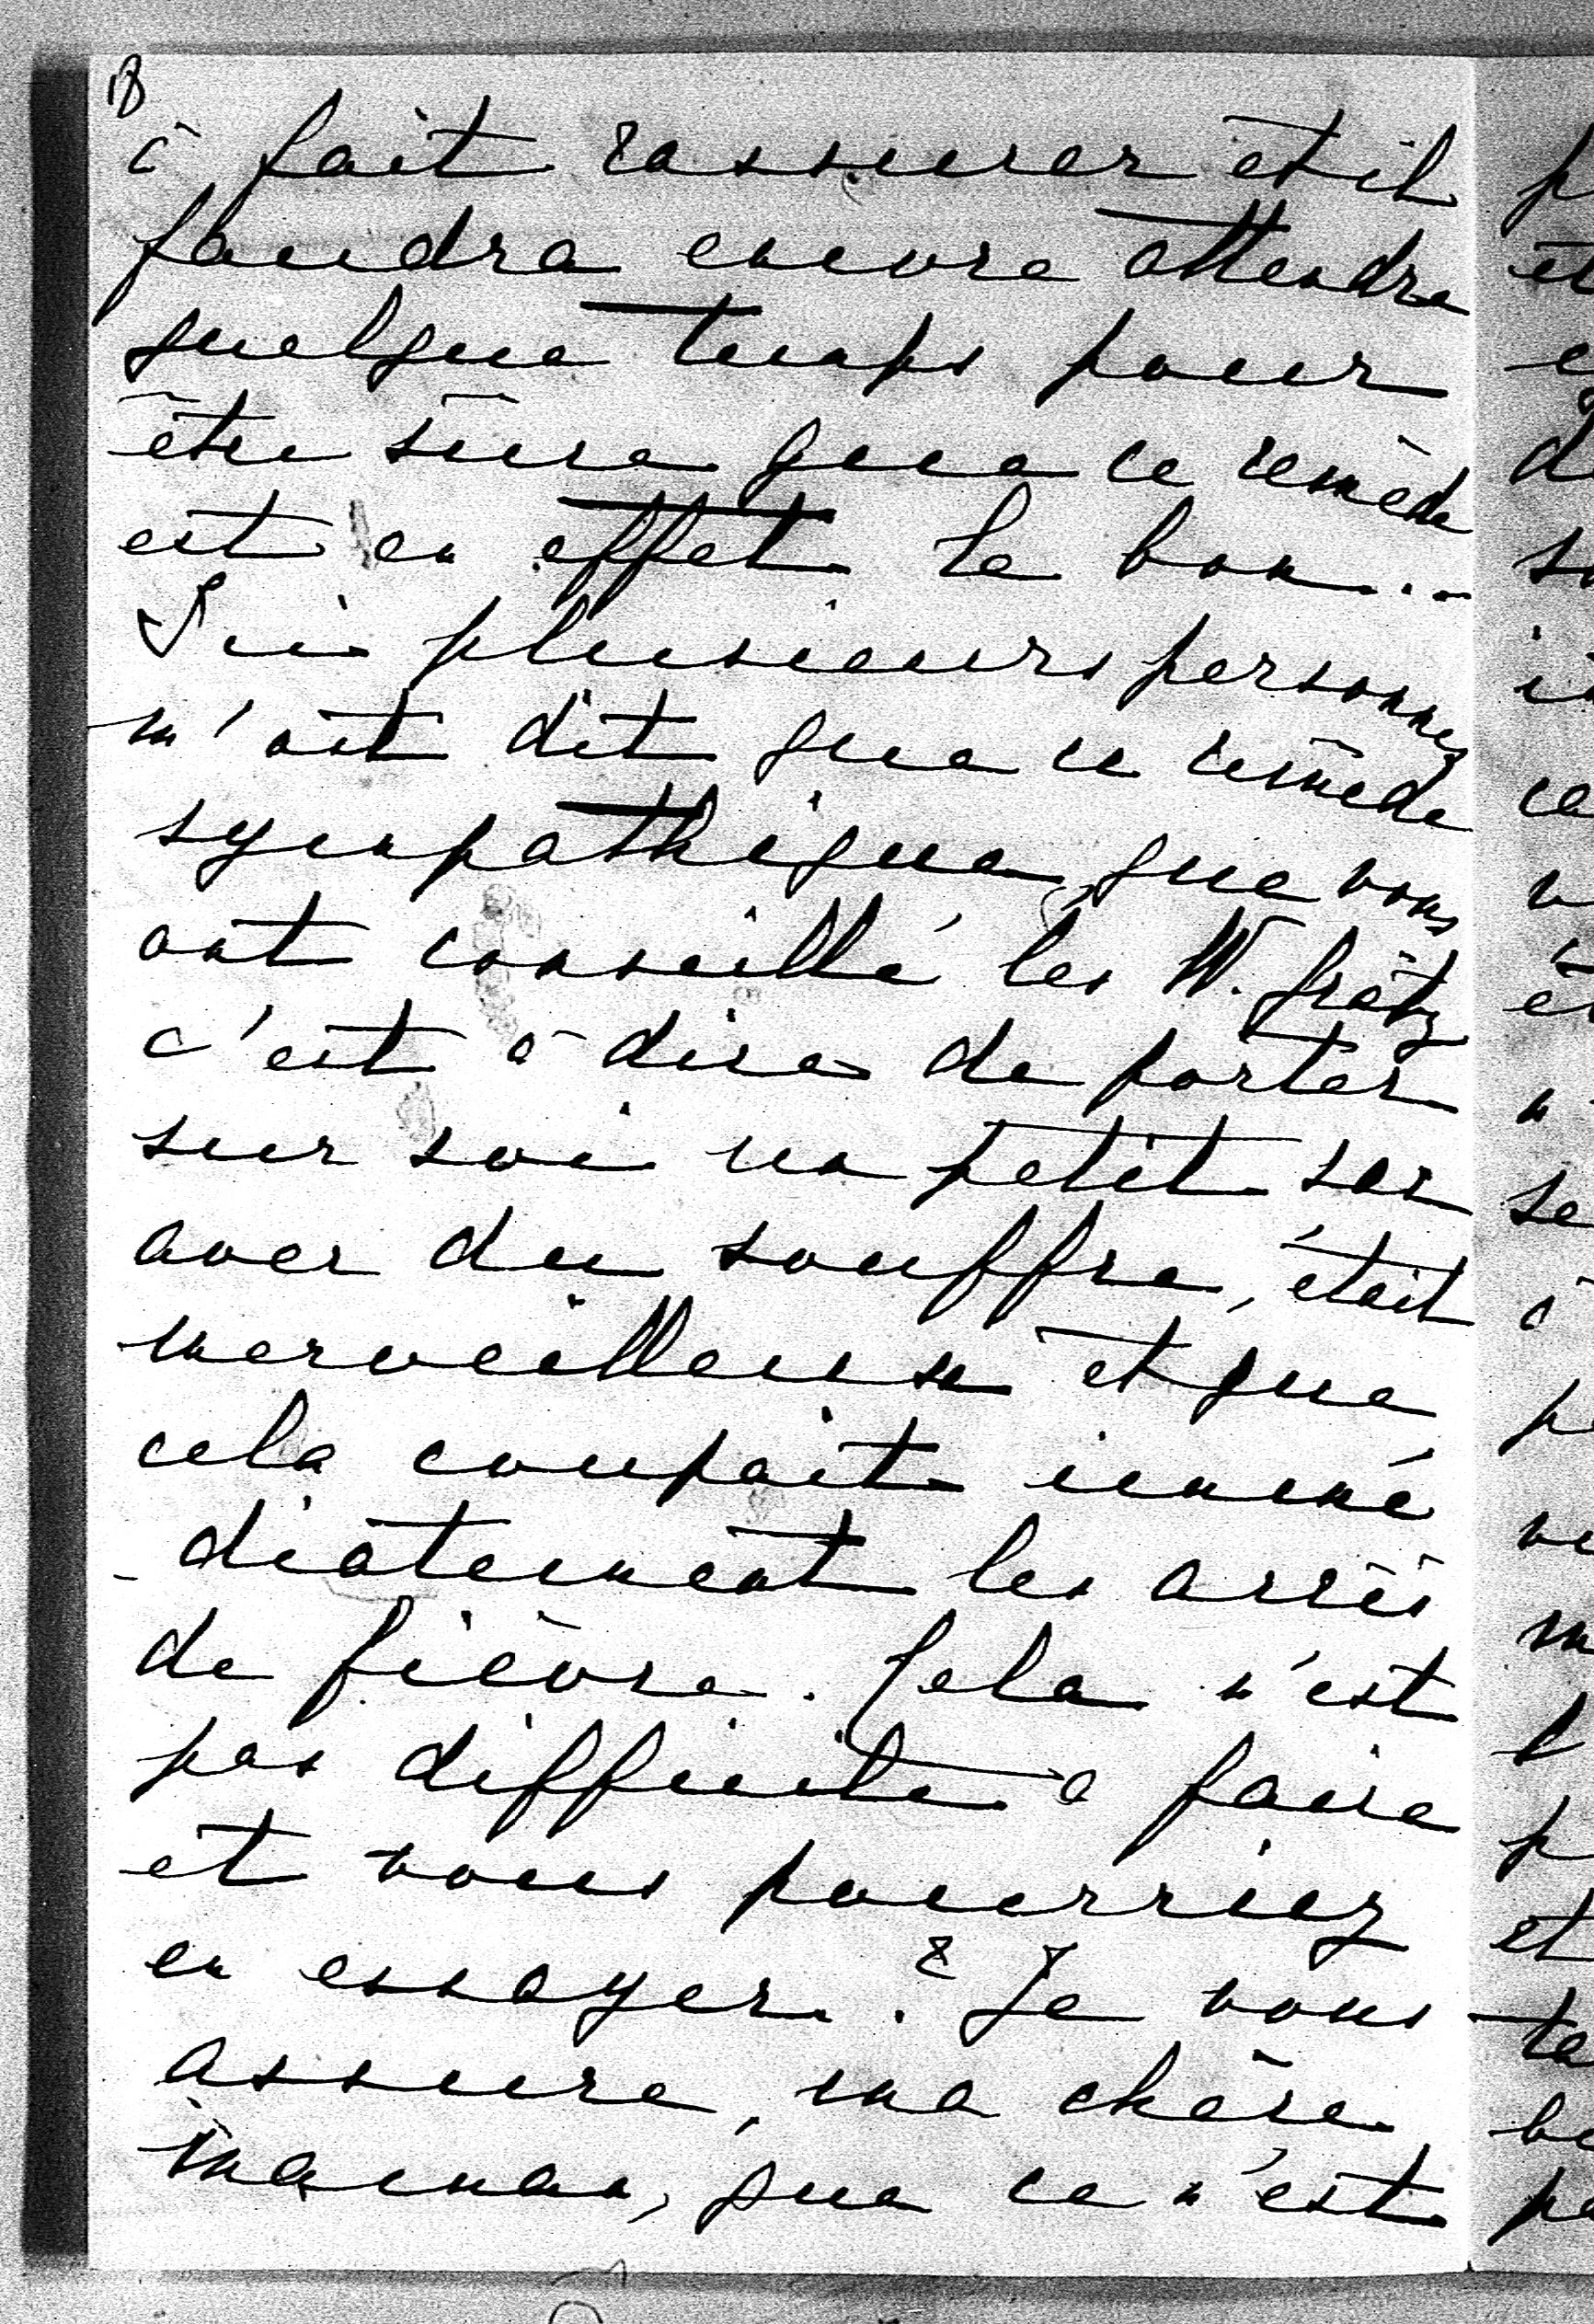 18
à fait rassurer et il
faudra encore attendre
quelque temps pour
être sûre que ce remède
est en effet le bon...
Ici plusieurs personnes
m'ont dit que ce remède
sympathique que vous
ont conseillé les W.
c'est à dire de porter
sur soi un petit sac
avec du souffre, était
merveilleux et que
cela coupait immé
-diatement les accès
de fièvre. Cela n'est
pas difficile à faire
et vous pourriez
en essayer. ? Je vous
assure, ma chère
maman, que ce n'est